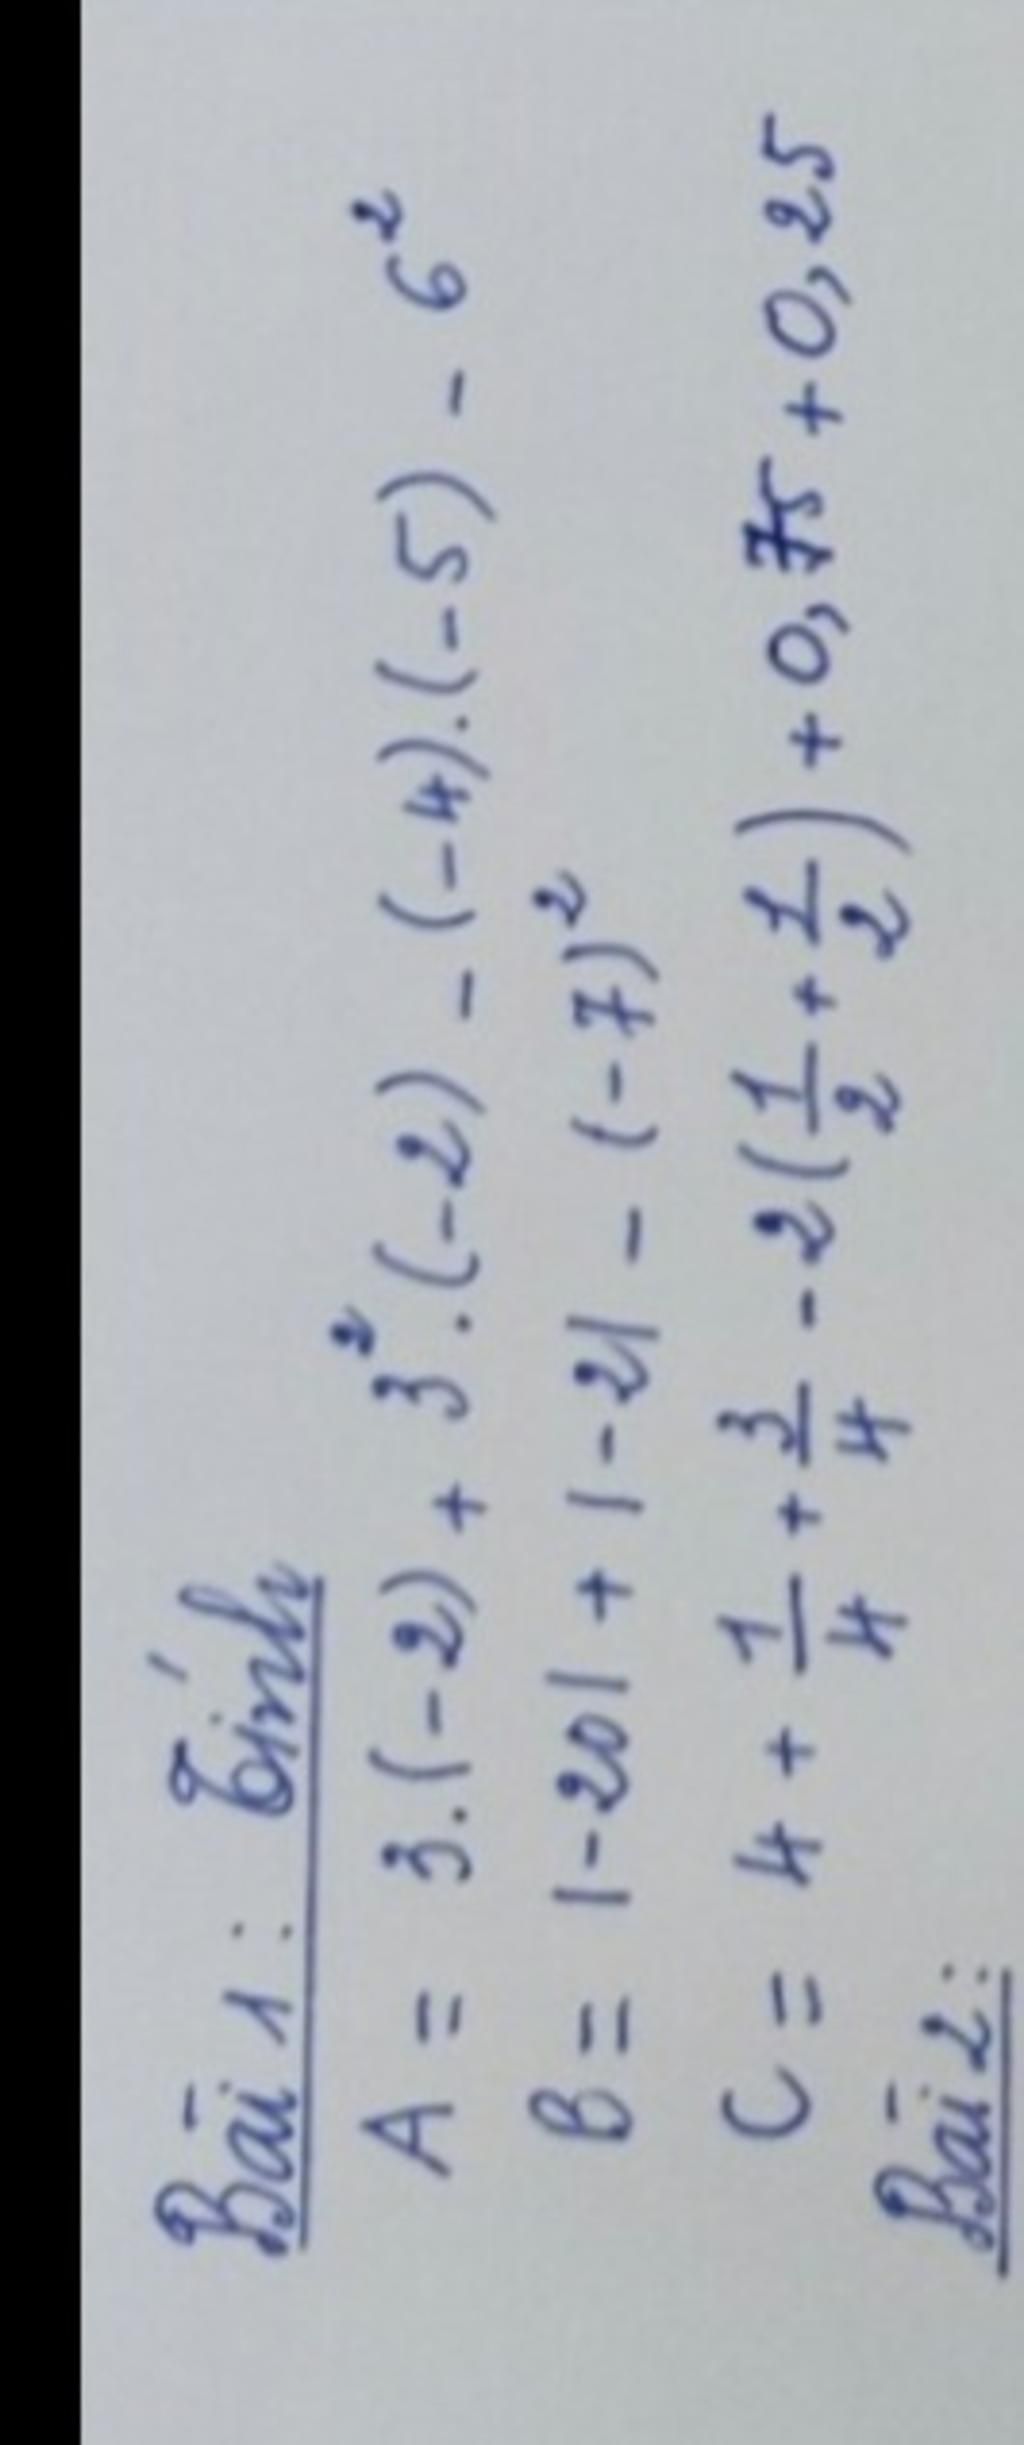 Bài 1: Tính
A = 3.(-2) + 3².(-2) - (-4).(-5) - 6²
B = |-20| + |-2| - (-7)²
C = 4 + 1/4 + 3/4 - 2(1/2 + 1/2) + 0,75 + 0,25
Bài 2: